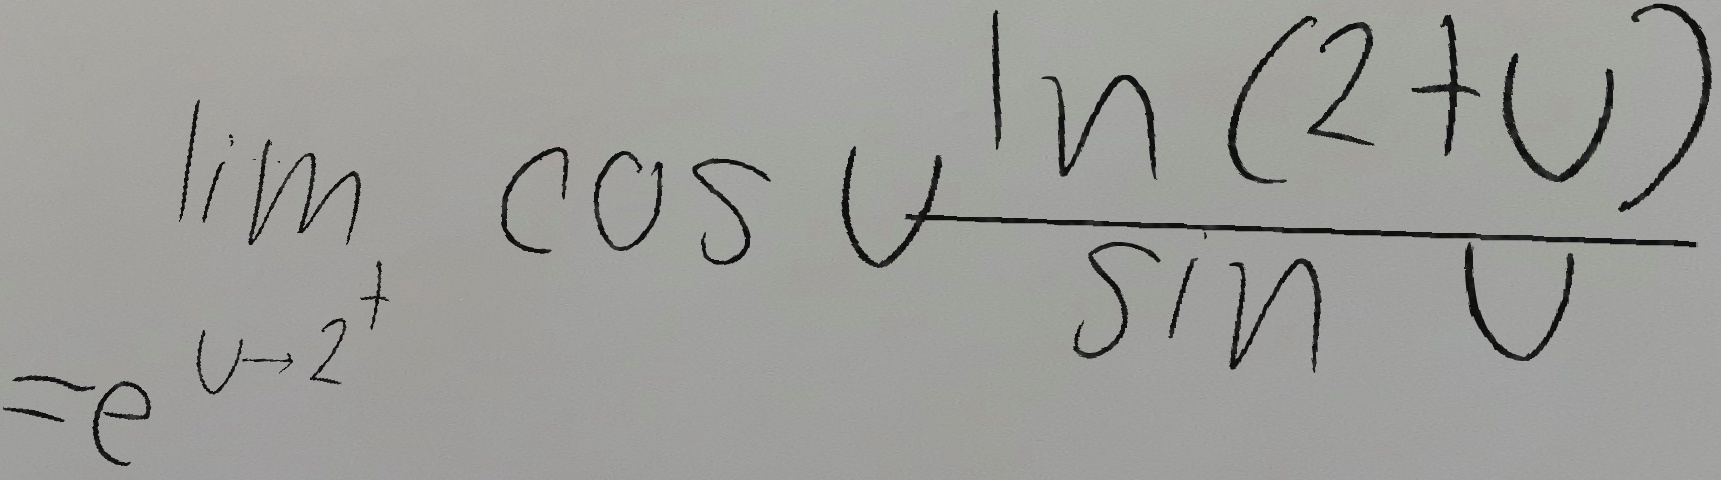 = e^{\lim_{u \to 2^+} \cos u \frac{\ln(2+u)}{\sin u}}